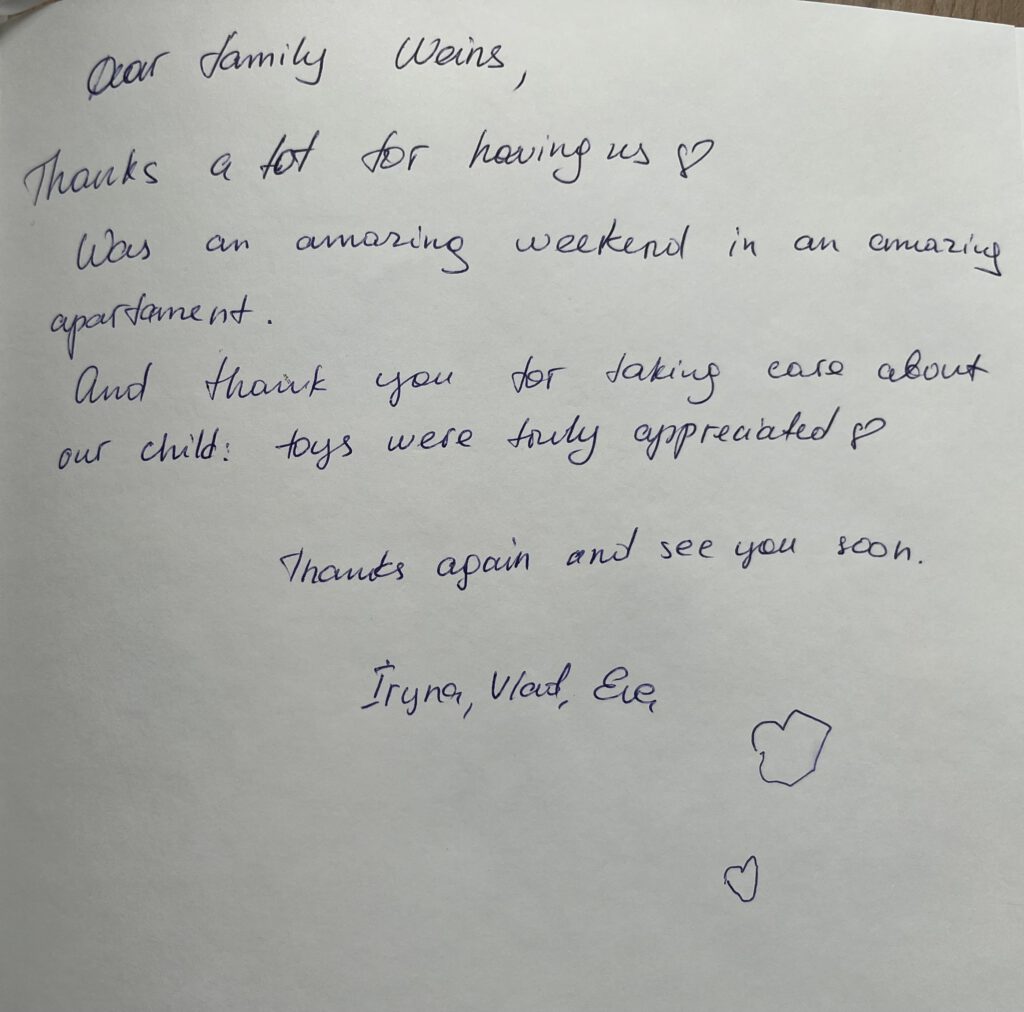 Dear family Weins,
Thanks a lot for having us ♡
Was an amazing weekend in an amazing
apartament.
And thank you for taking care about
our child: toys were truly appreciated ♡
Thanks again and see you soon.
Iryna, Vlad, Eva